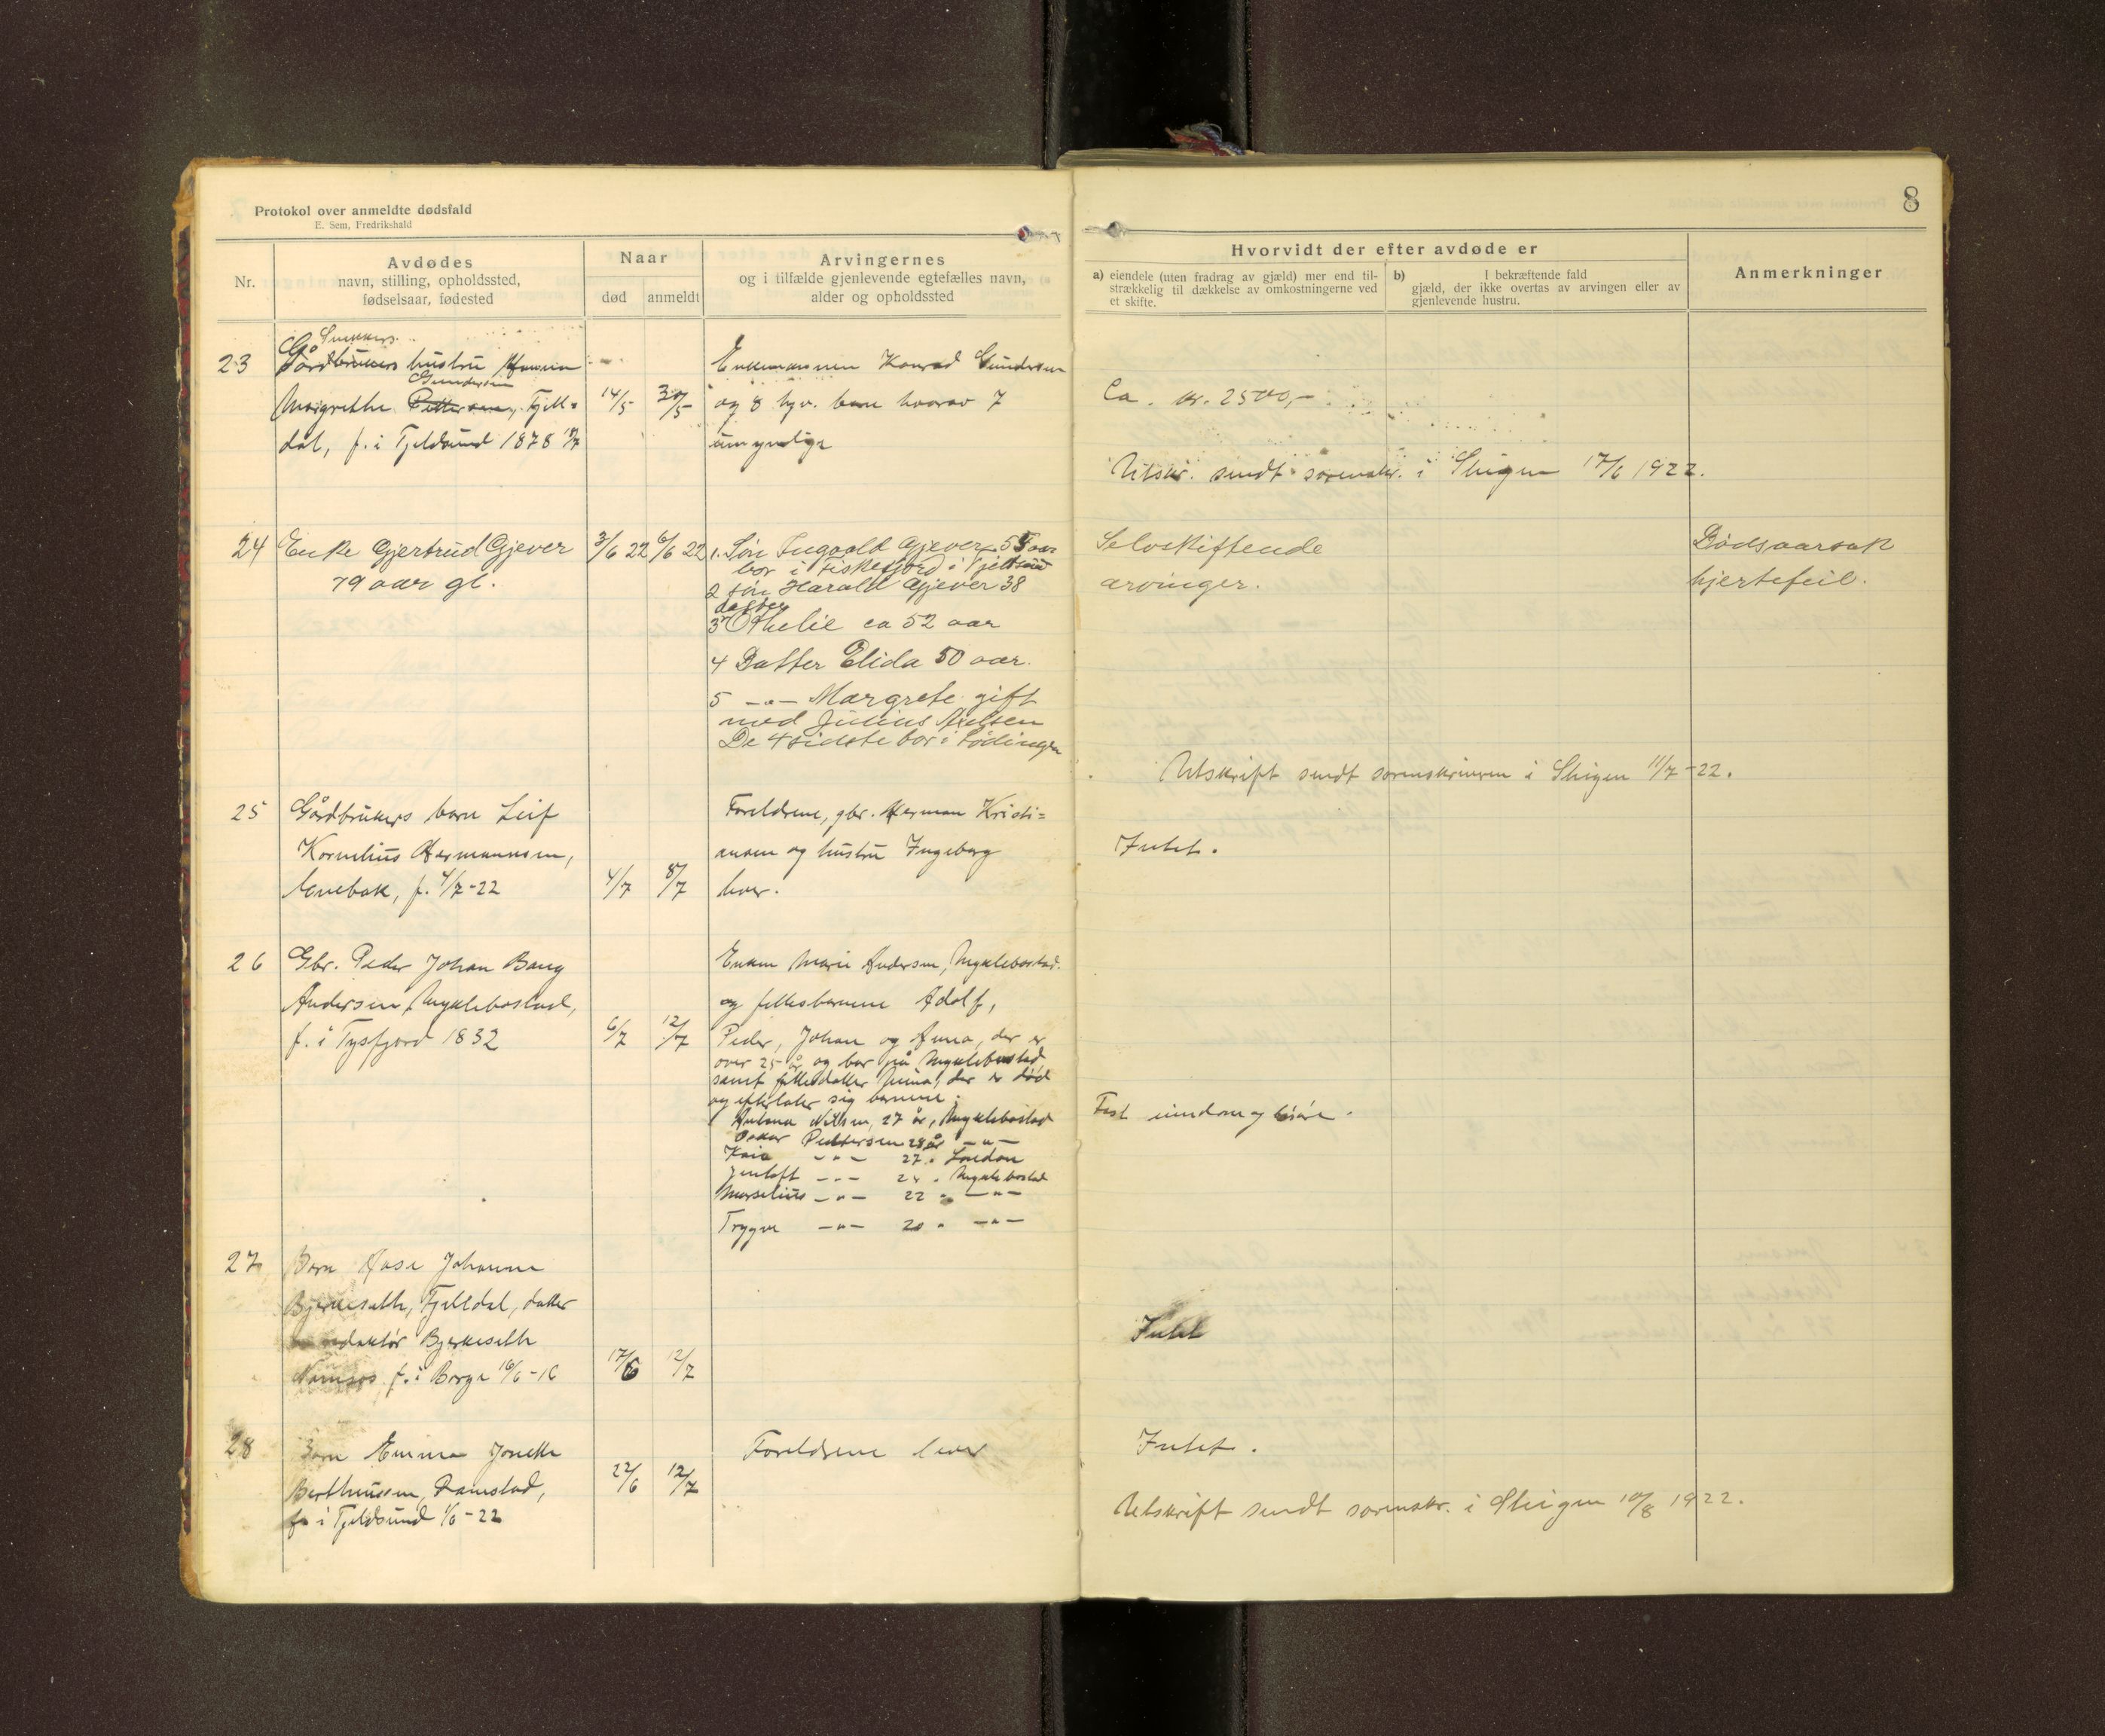 8
Protokol over anmeldte dødsfald
E. Sem, Fredrikshald
Nr.
Avdødes
navn, stilling, opholdssted,
fødselsaar, fødested
Naar
død
anmeldt
Arvingernes
og i tilfælde gjenlevende egtefælles navn,
alder og opholdssted
Hvorvidt der efter avdøde er
a) eiendele (uten fradrag av gjæld) mer end til-
strækkelig til dækkelse av omkostningerne ved
et skifte.
b) I bekræftende fald
gjæld, der ikke overtas av arvingen eller av
gjenlevende hustru.
Anmerkninger
Snekkers
23 Gårdbrukers hustru Hanna
Gundersen
Margrethe Pettersen, Fjell=
dal, f. i Tjeldsund 1878
14/5
30/5
Enkemannen Konrad Gundersen
og 8 hgv. barn hvorav 7
umyndige
Ca. kr. 2500,-
Utskr. sendt sorenskr. i Steigen 17/6 1922.
24 Enke Gjertrud Gjever
79 aar gl.
3/6 22
6/6 22
1. Søn Ingvald Gjever 55 aar
bor i Fiskefjord i Tjeldsund
2 søn Harald Gjever 38
datter
3 Othelie ca 52 aar
4 Datter Elida 50 aar.
5 -"- Margrete gift
med Julius Nielsen
De 4 sidste bor i Lødingen
Selvskiftende
arvinger.
Dødsaarsak
hjertefeil.
Utskrift sendt sorenskriveren i Steigen 11/7-22.
25 Gårdbrukers barn Leif
Kornelius Hermannsen,
Evnebak, f. 4/7-22
4/7
8/7
Foreldrene, gbr. Herman Kristi=
ansen og hustru Ingeborg
lever.
Intet.
26 Gbr. Peder Johan Bang
Andersen, Myklebostad,
f. i Tysfjord 1832
6/7
12/7
Enken Marie Andersen, Myklebostad.
og fellesbarnene Adolf,
Peder, Johan og Anna, der er
over 25 år og bor på Myklebostad
samt fellesdatter Junia, der er død
og efterlater sig barnene:
Antona Nilsen, 27 år, Myklebostad
Oskar Pettersen 28 år -"-
Kaia -"- 27 " London
Jentoft -"- 24 " Myklebostad
Marselius -"- 22 " -"-
Trygve -"- 20 " -"-
Fast eiendom og løsøre.
27 Barn Aase Johanne
Bjerkeseth, Fjelldal, datter
redaktør Bjerkeseth
Namsos f. i Borge 16/6-16
17/6
12/7
Intet
28 Barn Emma Jonette
Berthinussen, Ramstad,
f. i Tjeldsund 1/6-22
22/6
12/7
Foreldrene lever
Intet.
Utskrift sendt sorenskr. i Steigen 10/8 1922.